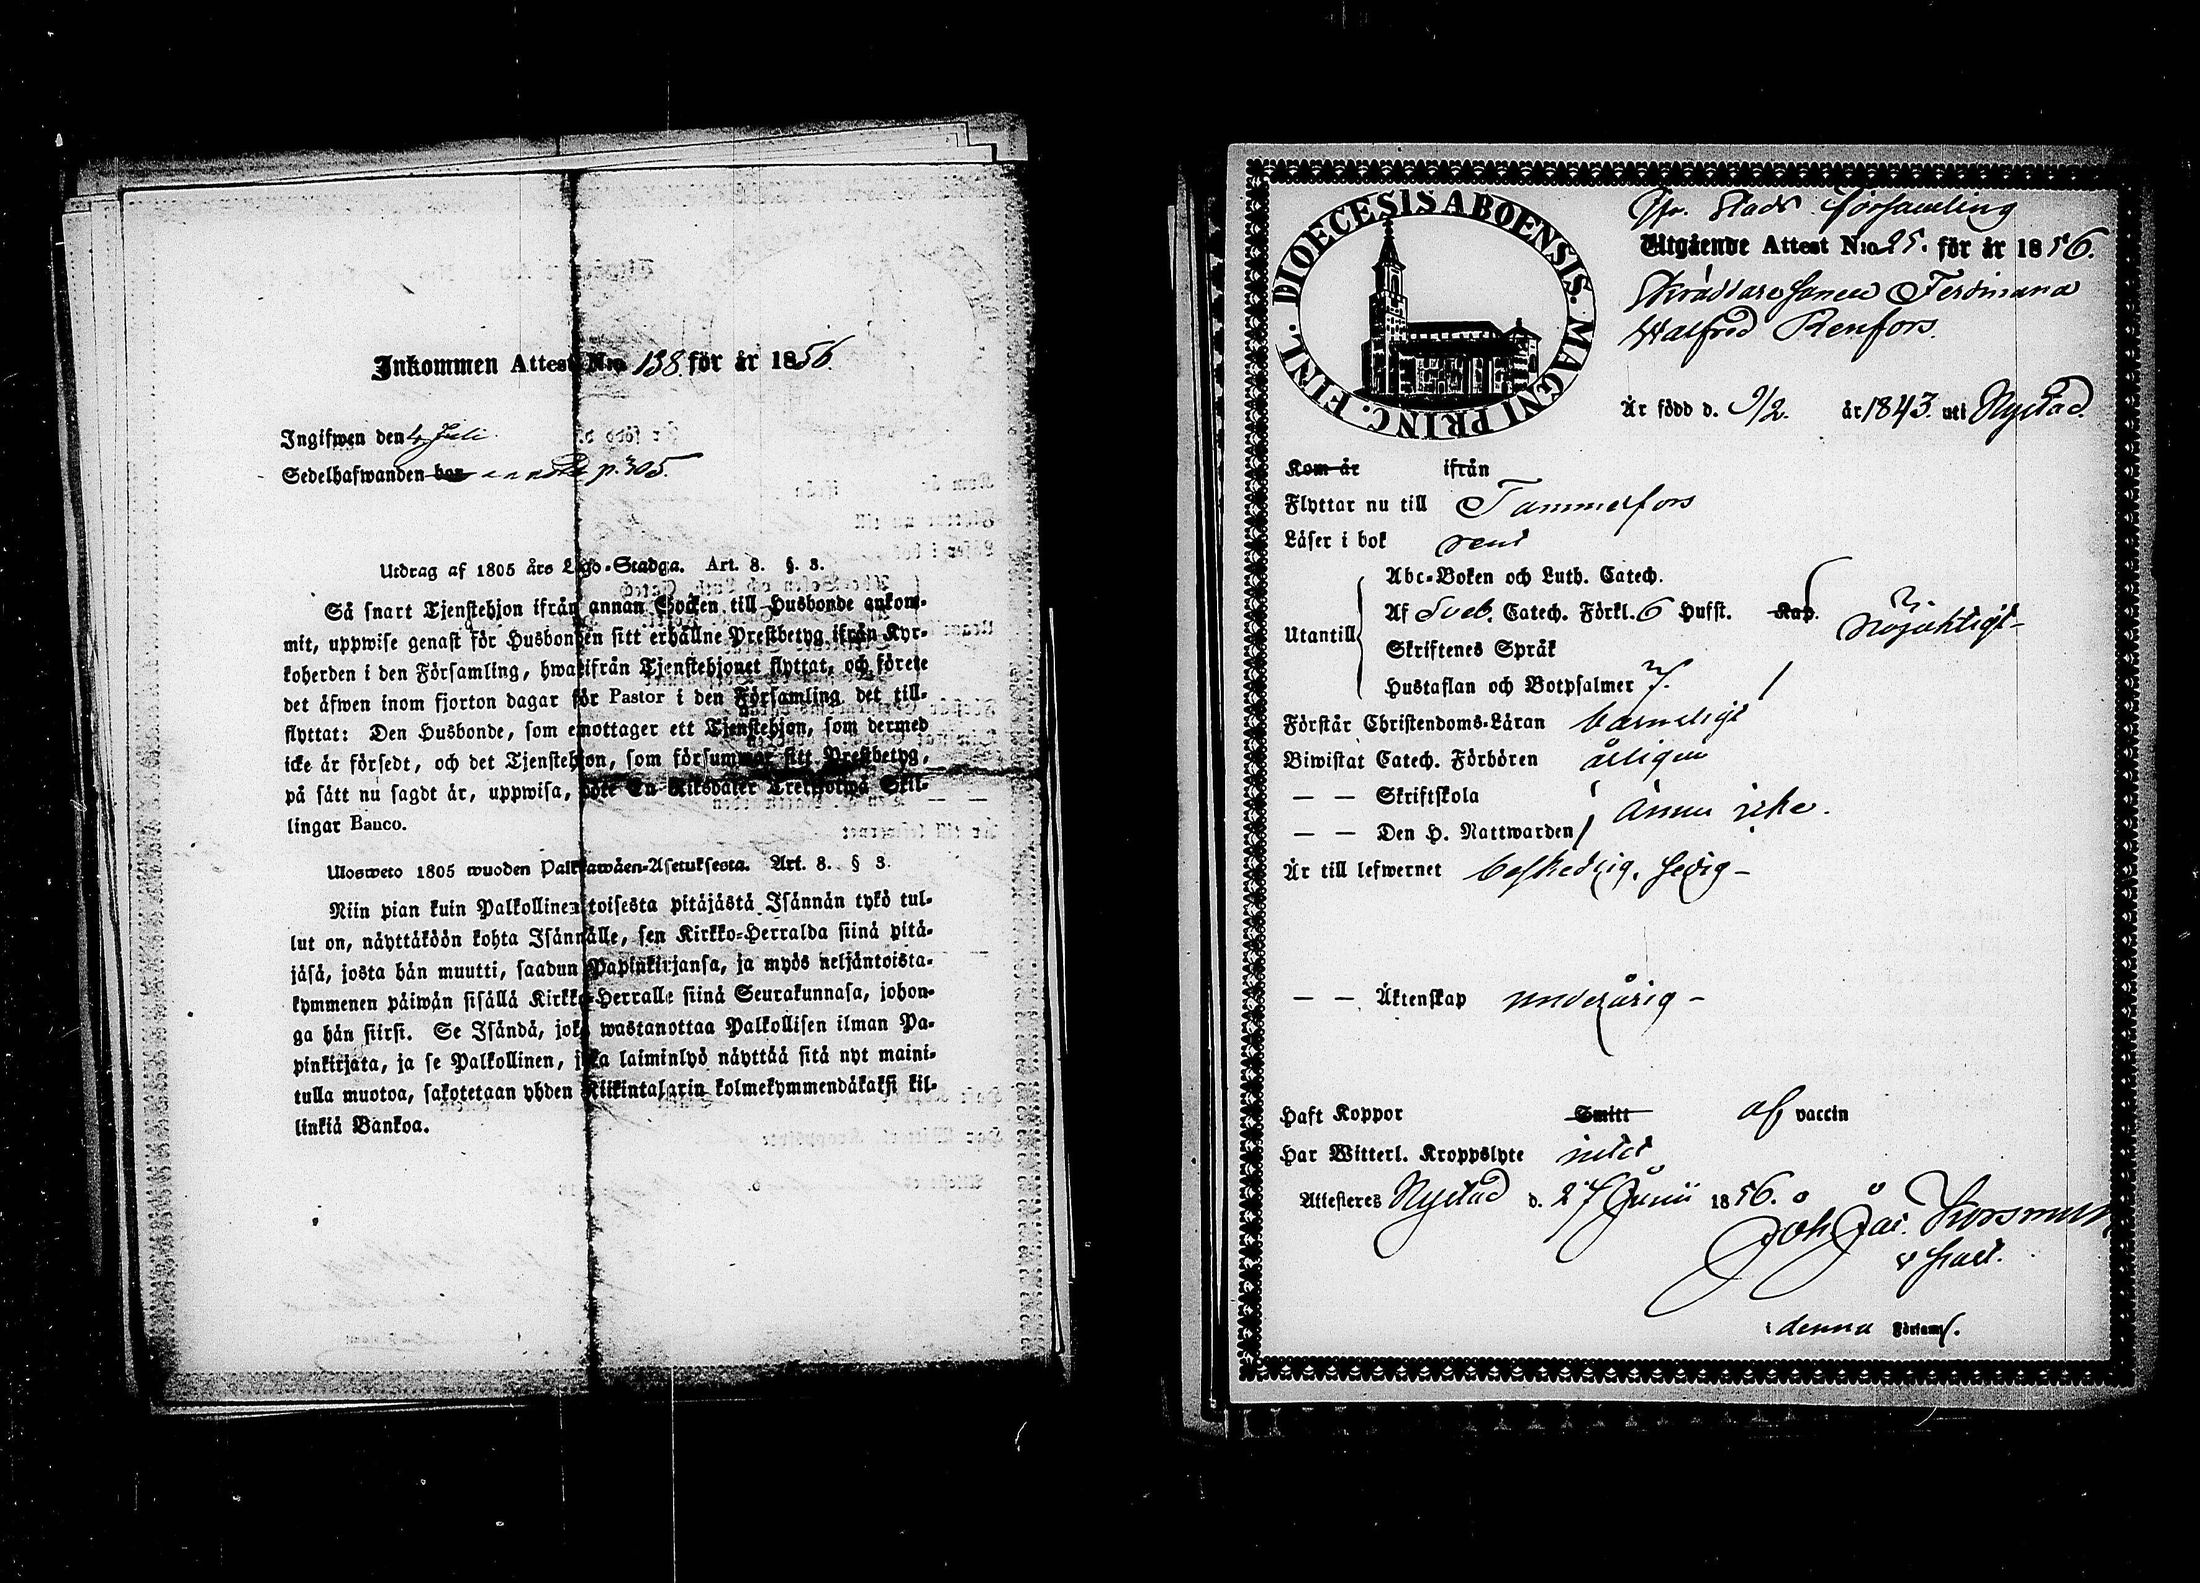 Inkommen Attest N:o 138 för år 1856.
Ingifwen den 4 Juli
Sedelhafwanden bor p. 305.
Utdrag af 1805 års Lego-Stadga. Art. 8. §. 3.
Så snart Tjenstehjon ifrån annan Socken till Husbonde ankom-
mit, uppwise genast för Husbonden sitt erhållne Prestbetyg ifrån Kyr-
koherden i den Församling, hwarifrån Tjenstehjonet flyttat, och förete
det äfwen inom fjorton dagar för Pastor i den Församling det till-
flyttat: Den Husbonde, som emottager ett Tjenstehjon, som dermed
icke är försedt, och det Tjenstehjon, som försummar sitt Prestbetyg,
på sätt nu sagdt är, uppwisa, böte En Riksdaler Trettiotwå Skil-
lingar Banco.
Ulosweto 1805 wuoden Palkkawäen-Asetuksesta. Art. 8. § 3.
Niin pian kuin Palkollinen toisesta pitäjästä Isännän tykö tul-
lut on, näyttäköön kohta Isännälle, sen Kirkko-Herralda siinä pitä-
jäsä, josta hän muutti, saadun Papinkirjansa, ja myös neljäntoista-
kymmenen päiwän sisällä Kirkko-Herralle siinä Seurakunnasa, johon-
ga hän siirsi. Se Isändä, joka wastanottaa Palkollisen ilman Pa-
pinkirjata, ja se Palkollinen, joka laiminlyö näyttää sitä nyt maini-
tulla muotoa, sakotetaan yhden Riikintalarin kolmekymmendäkaksi kil-
linkiä Bankoa.
DIOECESIS ABOENSIS. MAGNI PRINC. FINL.
Stads Församling
Utgående Attest N:o 25. för år 1856.
Skräddaresonen Ferdinand
Walfred Renfors.
Är född d. 9/2. år 1843. uti Nystad.
Kom år ifrån
Flyttar nu till Tammerfors
Läser i bok rent
Utantill
Abc-Boken och Luth. Catech.
Af Sveb. Catech. Förkl. 6 Hufst. Kap.
Nöjaktigt
Skriftenes Språk
Hustaflan och Botpsalmer 7.
Förstår Christendoms-Läran barnsligt
Biwistat Catech. Förhören årligen
— — Skriftskola
— — Den H. Nattwarden
ännu icke.
Är till lefwernet beskedlig, sedig -
— — Äktenskap underårig -
Haft Koppor Smitt af vaccin
Har Witterl. Kroppslyte intet
Attesteres Nystad d. 27 Junii 1856.
Joh. Jac.
i denna Församl.